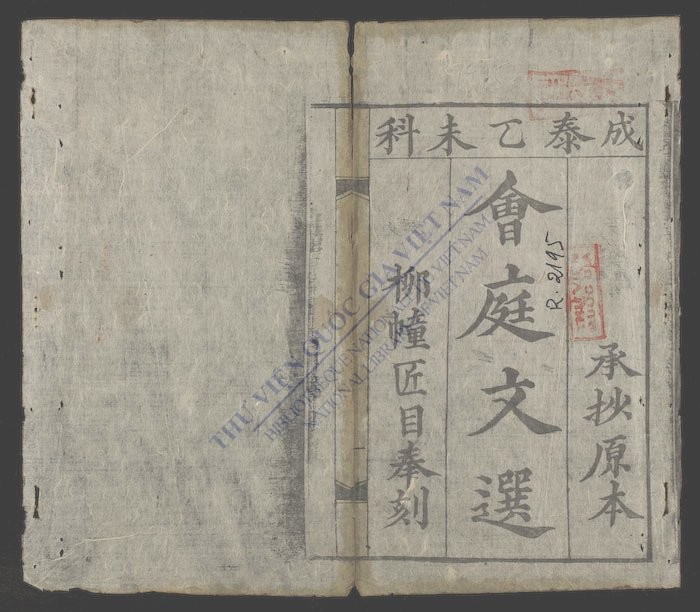 成泰乙未科
承抄原本
會庭文選
柳幢匠目奉刻
R. 2195
THƯ VIỆN QUỐC GIA VIỆT NAM
BIBLIOTHEQUE NATIONALE DU VIETNAM
NATIONAL LIBRARY OF VIETNAM